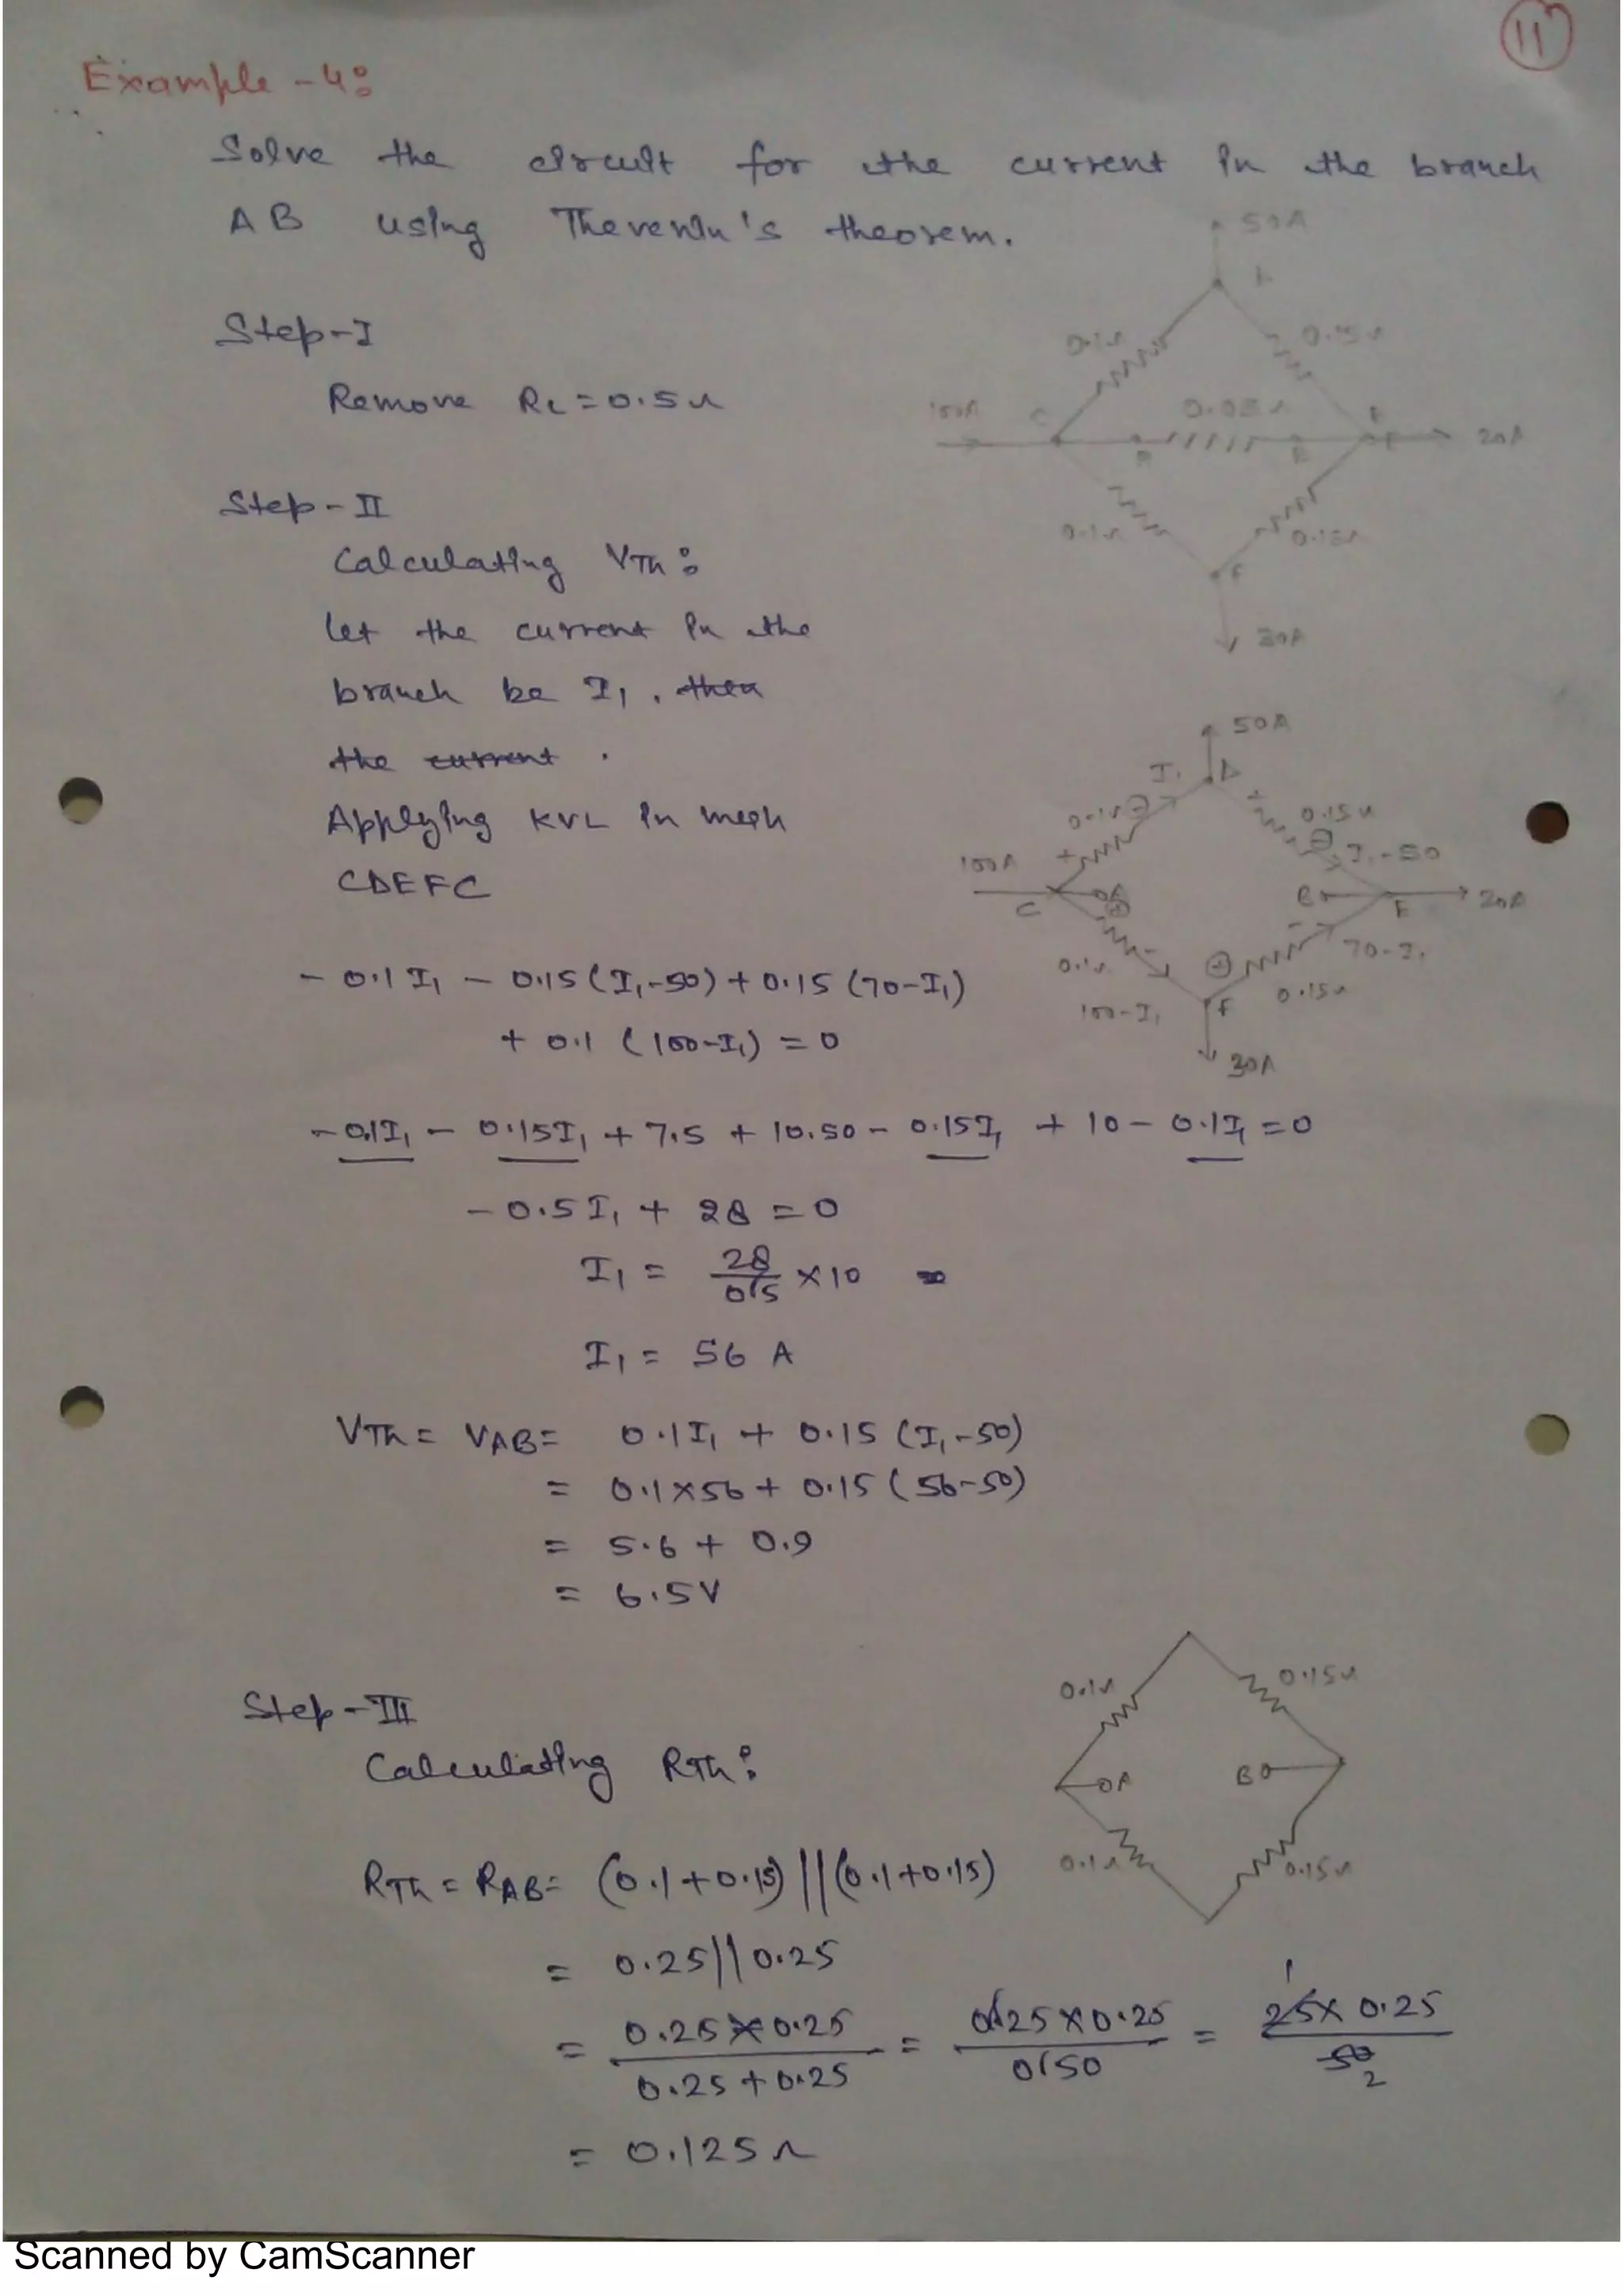 11
Example - 4:
Solve the circuit for the current in the branch
AB using Thevenin's theorem.
50A
A
0.1Ω 0.15Ω
Step-I
Remove RL = 0.5Ω
100A C 0.05Ω 20A
0.1Ω 0.15Ω
F
30A
Step-II
Calculating VTh:
Let the current in the
branch be I1. then
the current .
Applying KVL in mesh
CDEFC
50A
I1 D
0.1Ω 0.15Ω
I1-50
100A + - +
C OA B E 20A
0.1Ω 70-I1
100-I1 F 0.15Ω
30A
- 0.1 I1 - 0.15 (I1-50) + 0.15 (70-I1)
+ 0.1 (100-I1) = 0
- 0.1I1 - 0.15I1 + 7.5 + 10.50 - 0.15I1 + 10 - 0.1I1 = 0
- 0.5 I1 + 28 = 0
I1 = 28/0.5 × 10 =
I1 = 56 A
VTh = VAB = 0.1I1 + 0.15 (I1-50)
= 0.1×56 + 0.15 (56-50)
= 5.6 + 0.9
= 6.5V
Step-III
Calculating RTh:
0.1Ω 0.15Ω
OA BO
0.1Ω 0.15Ω
RTh = RAB = (0.1+0.15) || (0.1+0.15)
= 0.25 || 0.25
= 0.25×0.25/0.25+0.25 = 0.25×0.25/0.50 = 25×0.25/50 1 2
= 0.125Ω
Scanned by CamScanner